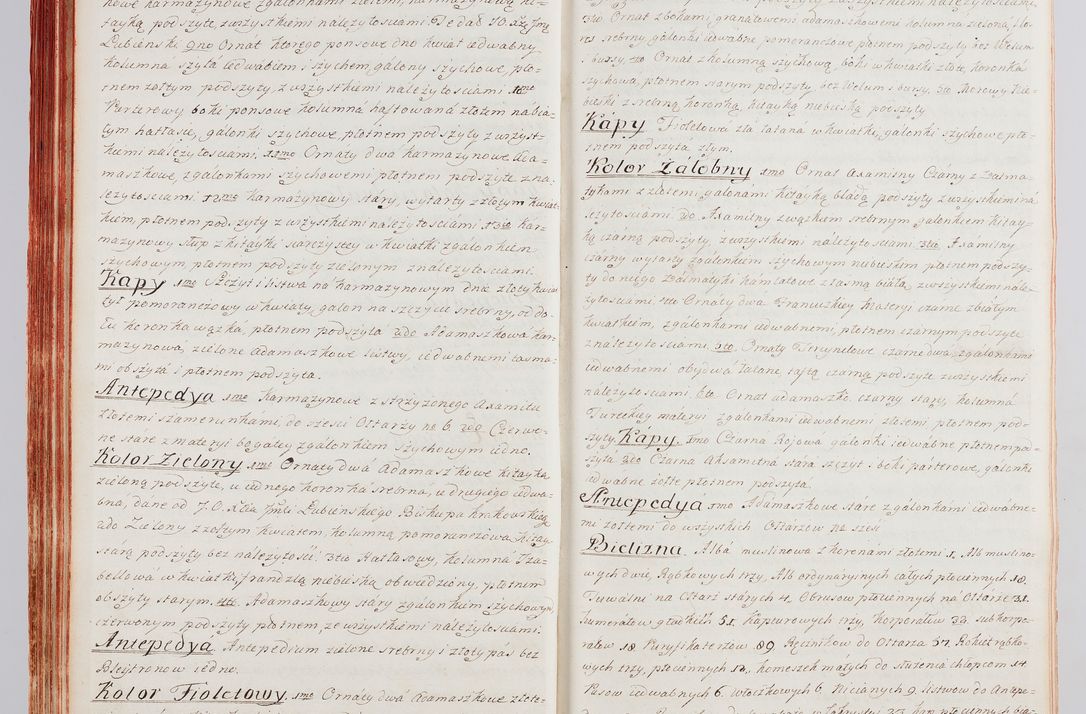 nowe karmazynowe zgalonkami złotemi, karmazynową ki=
tayką podszyte, zwszystkiemi należytosciami. Te dał J.O. Xże Jmć
Łubienski. 9no Ornat ktorego ponsowe dno kwiat jedwabny
kolumna szyta jedwabiem i szychem, galony szychowe, płó=
tnem żołtym podszyty, zwszystkiemi należytosciami. 10mo
Parterowy boki ponsowe kolumna haftowana złotem nabia=
łym hatłasie, galonki szychowe płotnem podszyty zwszyst=
kiemi należytosciami. 11mo Ornaty dwa karmazynowe Ada=
maszkowe, zgalonkami szychowemi płotnem podszyte zna=
leżytosciami. 12mo karmazynowy stary, wytarty z złotym kwiat=
kiem, płotnem podszyty zwszystkiemi należytosciami. 13tio Kar=
mazynowy słup z kitayki szarzystey w kwiatki zgalonkiem
szychowym, płotnem podszyty zielonym znależytosciami.
Kapy 1mo Szczyt i listwa na karmazynowym dnie złoty kwiat
tył pomaranczowy w kwiaty, galon na szczycie srebrny, od do=
łu koronka wązka, płotnem podszyta. 2do Adamaszkowa kar=
mazynowa, zielone Adamaszkowe listwy, jedwabnemi tasma=
mi obszyta i płotnem podszyta.
Antepedya 1mo Karmazynowe z strzyzonego Axamitu
złotemi szamerunkami, do szesci Ołtarzy no 6. 2do Czerwo=
ne stare z materyi bogatey zgalonkiem szychowym jedno.
Kolor Zielony 1mo Ornaty dwa Adamaszkowe kitayką
zieloną podszyte, u jednego koronka srebrna, u drugiego jedwa=
bna, dane od J.O. Xcia Jmści Łubienskiego Biskupa krakowskiego
2do Zielony z żołtym kwiatem, kolumną pomaranczową, kitay.
starą podszyty bez należytości. 3tio Hatłasowy, kolumna Iza=
bellowa w kwiatki, frandzlą niebieską obwiedziony, płotnem
obszyty starym. 4to Adamaszkowy stary zgalonkiem szychowym
czerwonym podszyty płotnem, ze wszystkiemi należytosciami.
Antepedya. Antepedium zielone srebrny i złoty pas bez
Blejtronow jedno.
Kolor Fioletowy. 1mo Ornaty dwa Adamaszkowe złote=
3tio Ornat zbokami granatowemi adamaszkowemi kolumna zielona, flo=
res srebrny, galonki jedwabne pomaranczowe płotnem podszyty bez Welum
i bursy, 4to Ornat z kolumną szychową, boki w kwiatki złote, koronka
szychowa, płotnem starym podszyty, bez Welum i bursy. 5to Morowy Nie=
bieski z srebrną koronką, kitayką niebieską podszyty
Kapy Fioletowa zła łatana w kwiatki, galonki szychowe pło=
tnem podszyta złym.
Kolor Żałobny 1mo Ornat Axamitny Czarny z Dalma=
tykami z złotemi galonami kitayką bladą podszyty zwszystkiemi na=
leżytosciami. 2do Axamitny zwązkim srebrnym galonkiem kitay=
ką czarną podszyty, zwszystkiemi należytosciami. 3tio Axamitny
czarny wytarty zgalonkiem szychowym niebieskim płotnem podszy=
ty do niego Dalmatyki kamlotowe z tasmą białą, zwszystkiemi nale=
żytosciami. 4to Ornaty dwa Francuzkiey Materyi czarne zbiałym
kwiatkiem, zgalonkami jedwabnemi, płotnem czarnym podszyte
znależytosciami. 5to. Ornaty Tercynelowe czarne dwa, zgalonkami
jedwabnemi obydwa łatane, taftą czarną podszyte zwszystkiemi
należytosciami. 6to. Ornat adamaszko. czarny stary, kolumna
Tureckiey materyi zgalonkami jedwabnemi złotemi płotnem pod=
szyty. Kapy. 1mo Czarna Rojowa galonki jedwabne płotnem pod=
szyta. 2do Czarna Aksamitna stara szczyt i boki parterowe, galonki
jedwabne żołte płotnem podszyta.
Antepedya 1mo Adamaszkowe stare zgalonkami jedwabne=
mi żołtemi do wszystkich Ołtarzow no szesć
Bielizna. Alba muslinowa z koronami złotemi 1, Alb muslino=
wych dwie, Rąbkowych trzy, Alb ordynaryinych całych płociennych 18.
Tuwalni na Ołtarz starych 4. Obrusow płociennych na Ołtarze 31.
humerałow gładkich 51. Kapturowych trzy, korporałow 33. subkorpo=
rałow 18. Puryfikaterzow. 89. Ręcznikow do Ołtarza 57. Rokiet rąbko=
wych trzy, płociennych 12. komeszek małych do służenia chłopcom 14
Pasow jedwabnych 6. włoczkowych 6. Nicianych 9. listwow do Antepe=